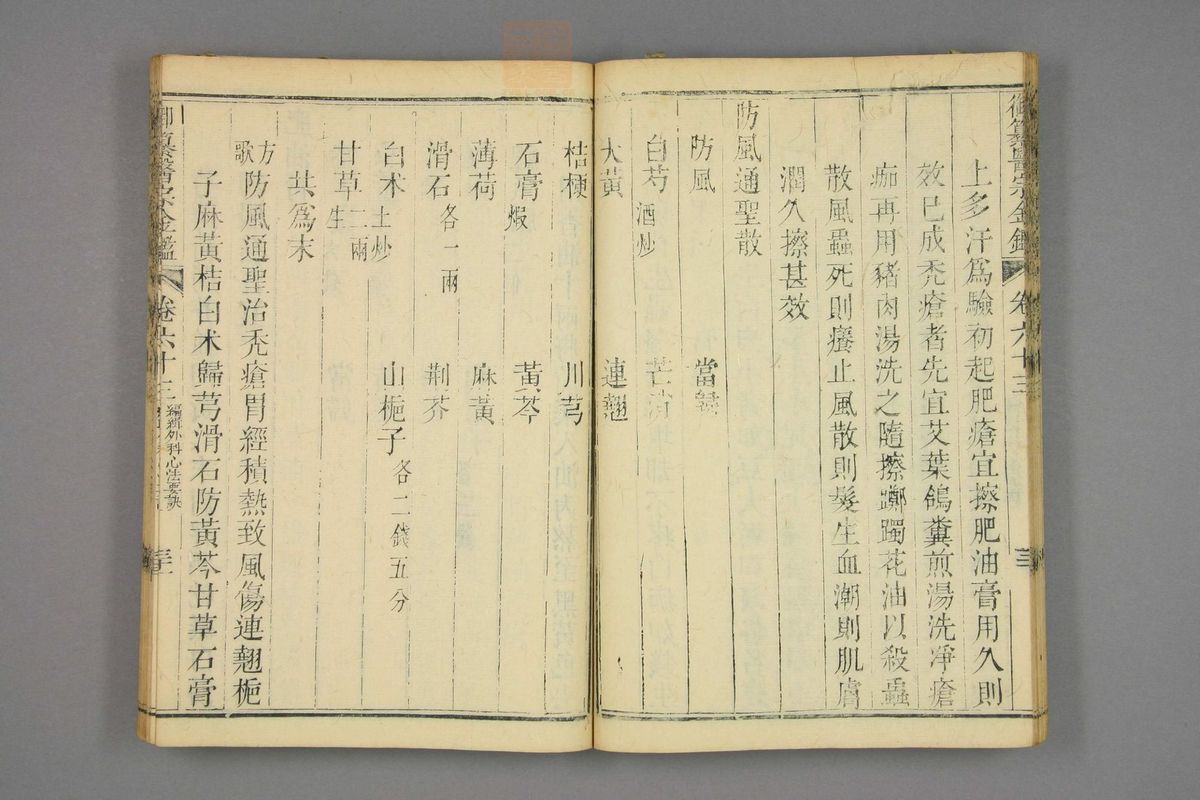 御纂醫宗金鑑 卷六十三
上多汗爲驗初起肥瘡宜擦肥油膏用久則
效已成禿瘡者先宜艾葉鴿糞煎湯洗凈瘡
痂再用豬肉湯洗之隨擦躑躅花油以殺蟲
散風蟲死則癢止風散則髮生血潮則肌膚
潤久擦甚效
防風通聖散
防風 當歸
白芍酒炒 芒硝
大黃 連翹
桔梗 川芎
石膏煅 黃芩
薄荷 麻黃
滑石各一兩 荆芥
白术土炒 山梔子各二錢五分
甘草二兩生
共爲末
方歌防風通聖治禿瘡胃經積熱致風傷連翹梔
子麻黃桔白术歸芎滑石防黃芩甘草石膏
御纂醫宗金鑑 卷六十三 編輯外科心法要訣